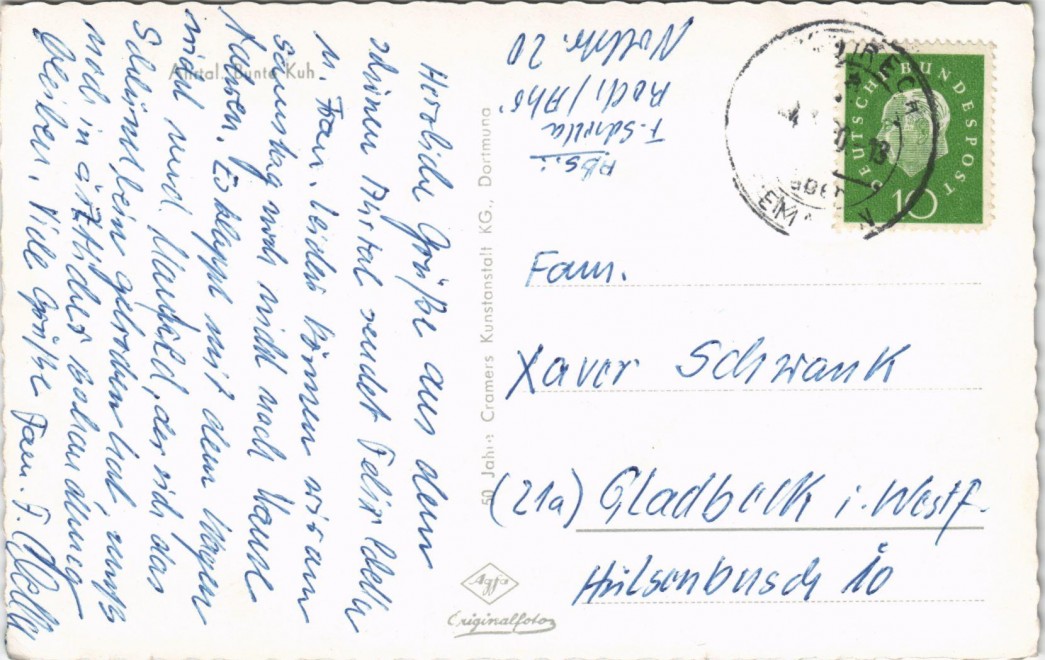 Ahrtal. Bunte Kuh
Herzliche Grüße aus dem
schönen Ahrtal sendet Felix
u. Frau. Leider können wir am
Samstag noch nicht nach Hause
fahren. Es klappt mit dem Wagen
nicht und Manfred, der sich das
Schlüsselbein gebrochen hat, muß
noch in ärztlicher Behandlung
bleiben. Viele Grüße Fam. F.
50 Jahre Cramers Kunstanstalt KG., Dortmund
Agfa
Originalfoto
Abs.:
F.
Rech / Ahr
Nr. 20
DEUTSCHE BUNDESPOST
10
Fam.
Xaver Schwank
(21a) Gladbeck i. Westf.
Hülsenbusch 10